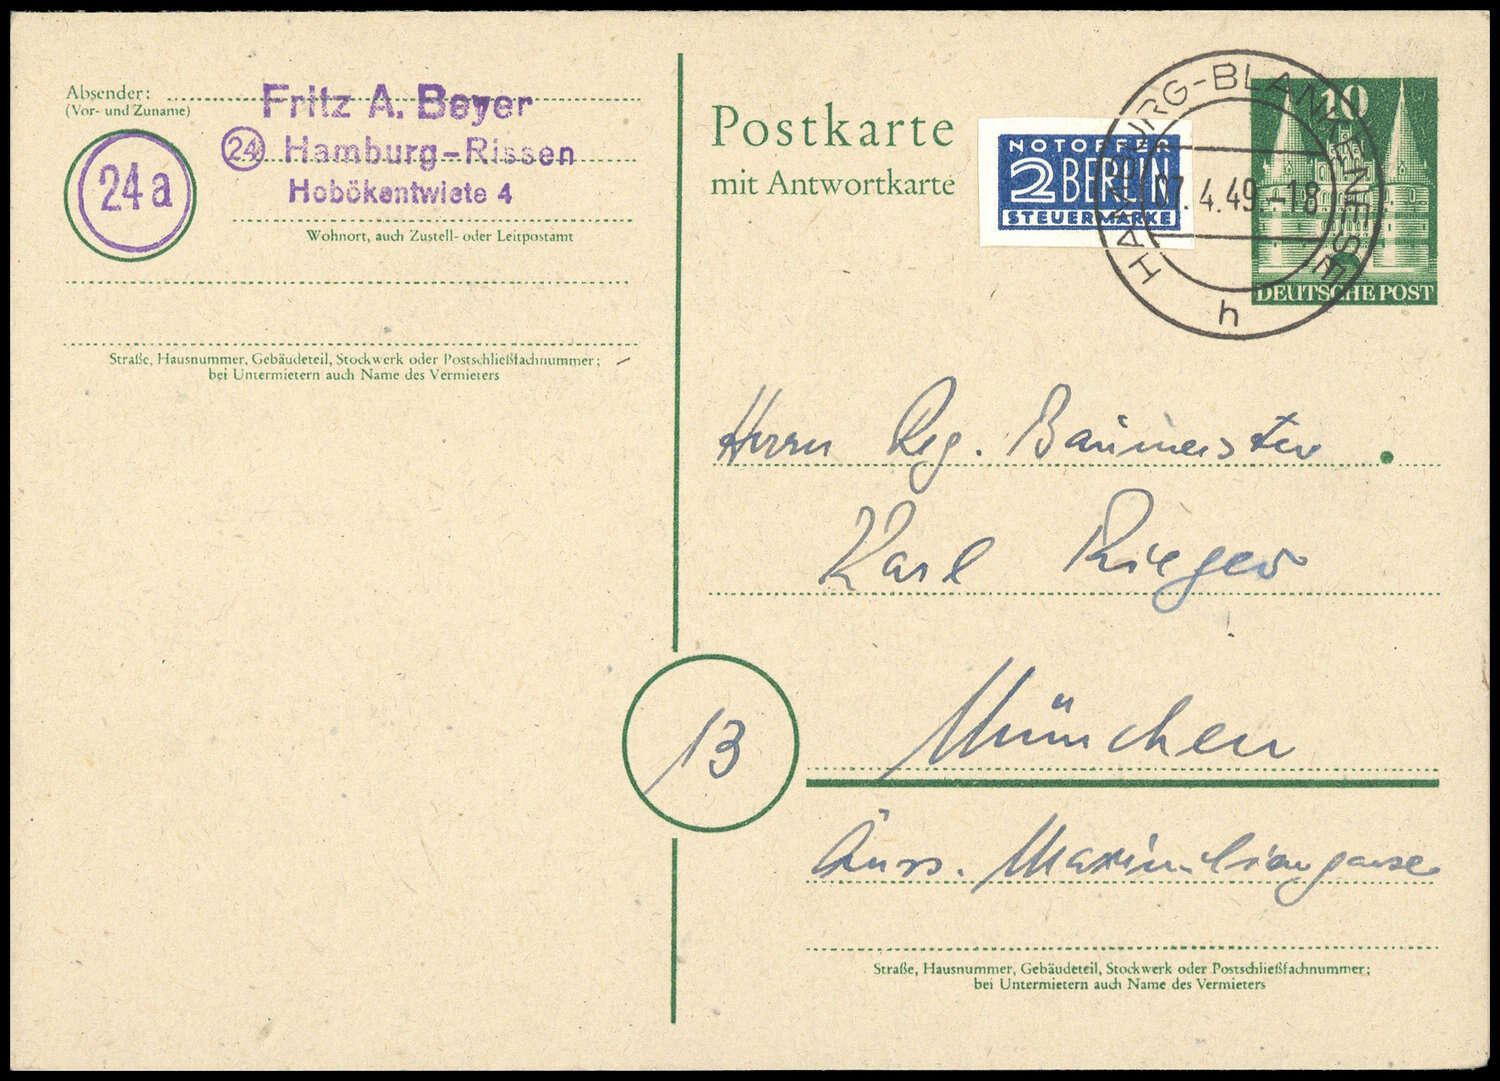 Absender:
(Vor- und Zuname)
Fritz A. Beyer
24 Hamburg-Rissen
Hobökentwiete 4
24a
Wohnort, auch Zustell- oder Leitpostamt
Straße, Hausnummer, Gebäudeteil, Stockwerk oder Postschließfachnummer;
bei Untermietern auch Name des Vermieters
Postkarte
mit Antwortkarte
NOTOPFER
2 BERLIN
STEUERMARKE
HAMBURG-BLANKENESE
07.4.49.-18
h
10
DEUTSCHE POST
Herrn Reg. Baumeister
Karl Rieger
13
München
Äuss. Maximilianstrasse
Straße, Hausnummer, Gebäudeteil, Stockwerk oder Postschließfachnummer;
bei Untermietern auch Name des Vermieters